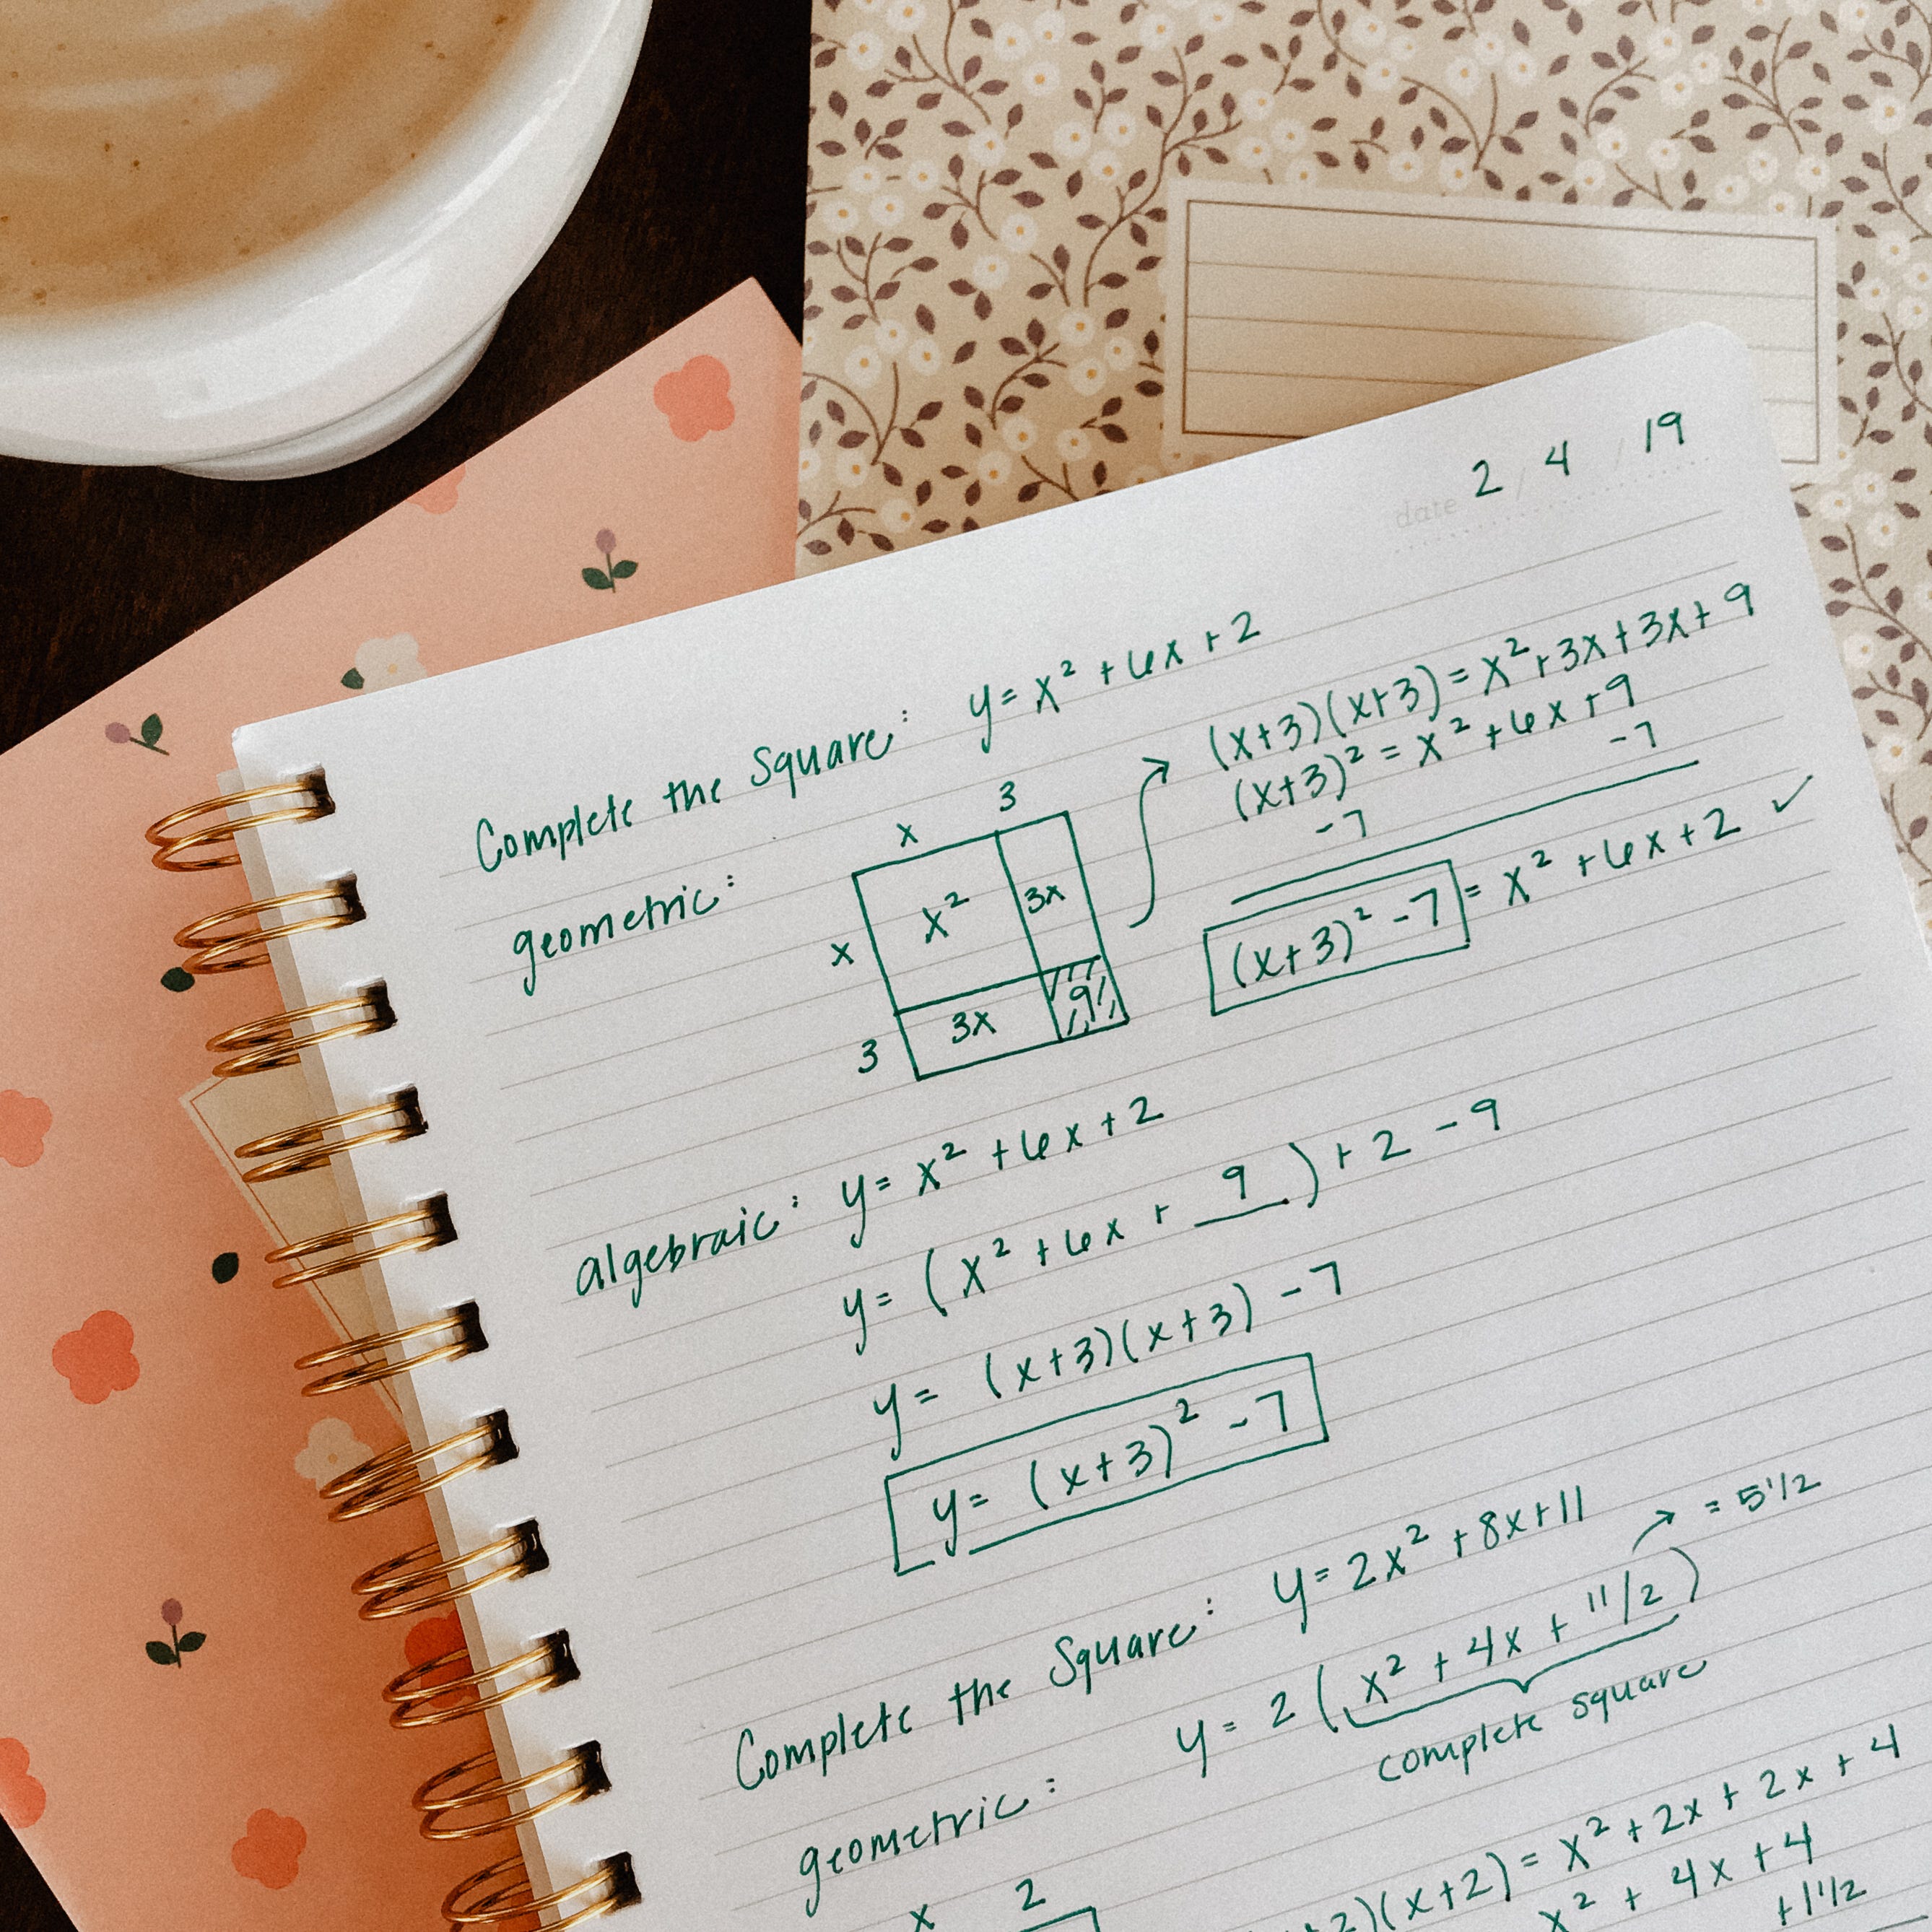 date 2 / 4 / 19
Complete the Square: y = x² + 6x + 2
geometric:
x 3
x² 3x
x
3x 9
3
(x+3)(x+3) = x² + 3x + 3x + 9
(x+3)² = x² + 6x + 9
-7 -7
(x+3)² - 7 = x² + 6x + 2 ✓
algebraic: y = x² + 6x + 2
y = (x² + 6x + 9) + 2 - 9
y = (x+3)(x+3) - 7
y = (x+3)² - 7
Complete the Square: y = 2x² + 8x + 11
y = 2(x² + 4x + 11/2) → = 5 1/2
complete square
geometric:
x 2
2)(x+2) = x² + 2x + 2x + 4
x² + 4x + 4
+1 1/2